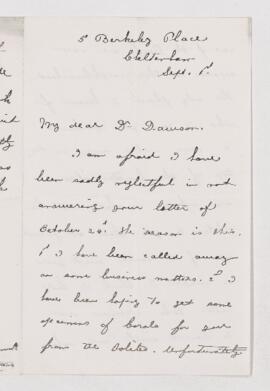 5 Berkeley Place
Cheltenham
Sept. 1st.
My dear Dr. Dawson.
I am afraid I have
been sadly neglectful in not
answering your letter of
October 24th. The reason is this.
1st I have been called away
on some business matters. 2d I
have been hoping to get some
specimens of Corals for you
from the Oolites. Unfortunately